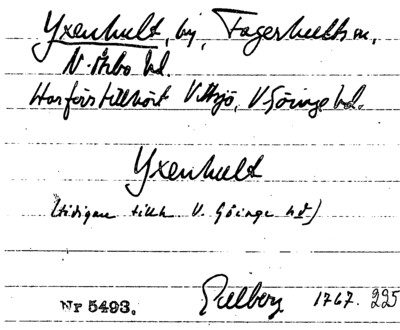 Yxenhult, by, Fagerhults sn,
N. Åsbo hd.
Har förs tillhört Vittsjö, V Göinge hd.
Yxenhult
(tidigare tillh. V. Göinge hd)
Gillberg 1767. 225
Nr 5493.